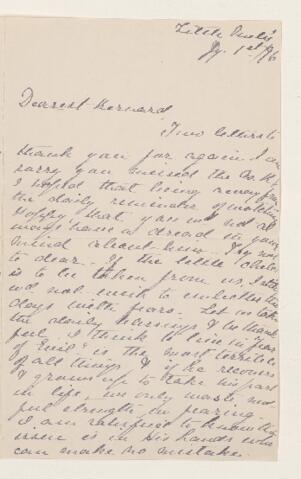 Little
Jy. 1st /96
Dearest Bernard
Two letters to
thank you for again. I am
sorry you missed the
I hoped that being away from
the daily reminder of watching
Hoppy that you wd not
always have a dread in your
mind about him. Try not
to dear. If the little
is to be taken from us I
wd not wish to embitter the
days with fears. Let us take
the daily blessings & be thank
ful. I think to live in fear
of Evil is the most terrible
of all things & if he recovers
& grows up to take his part
in life, we only waste our
strength in fearing.
I am satisfied to know the
issue is in His hands who
can make no mistake.